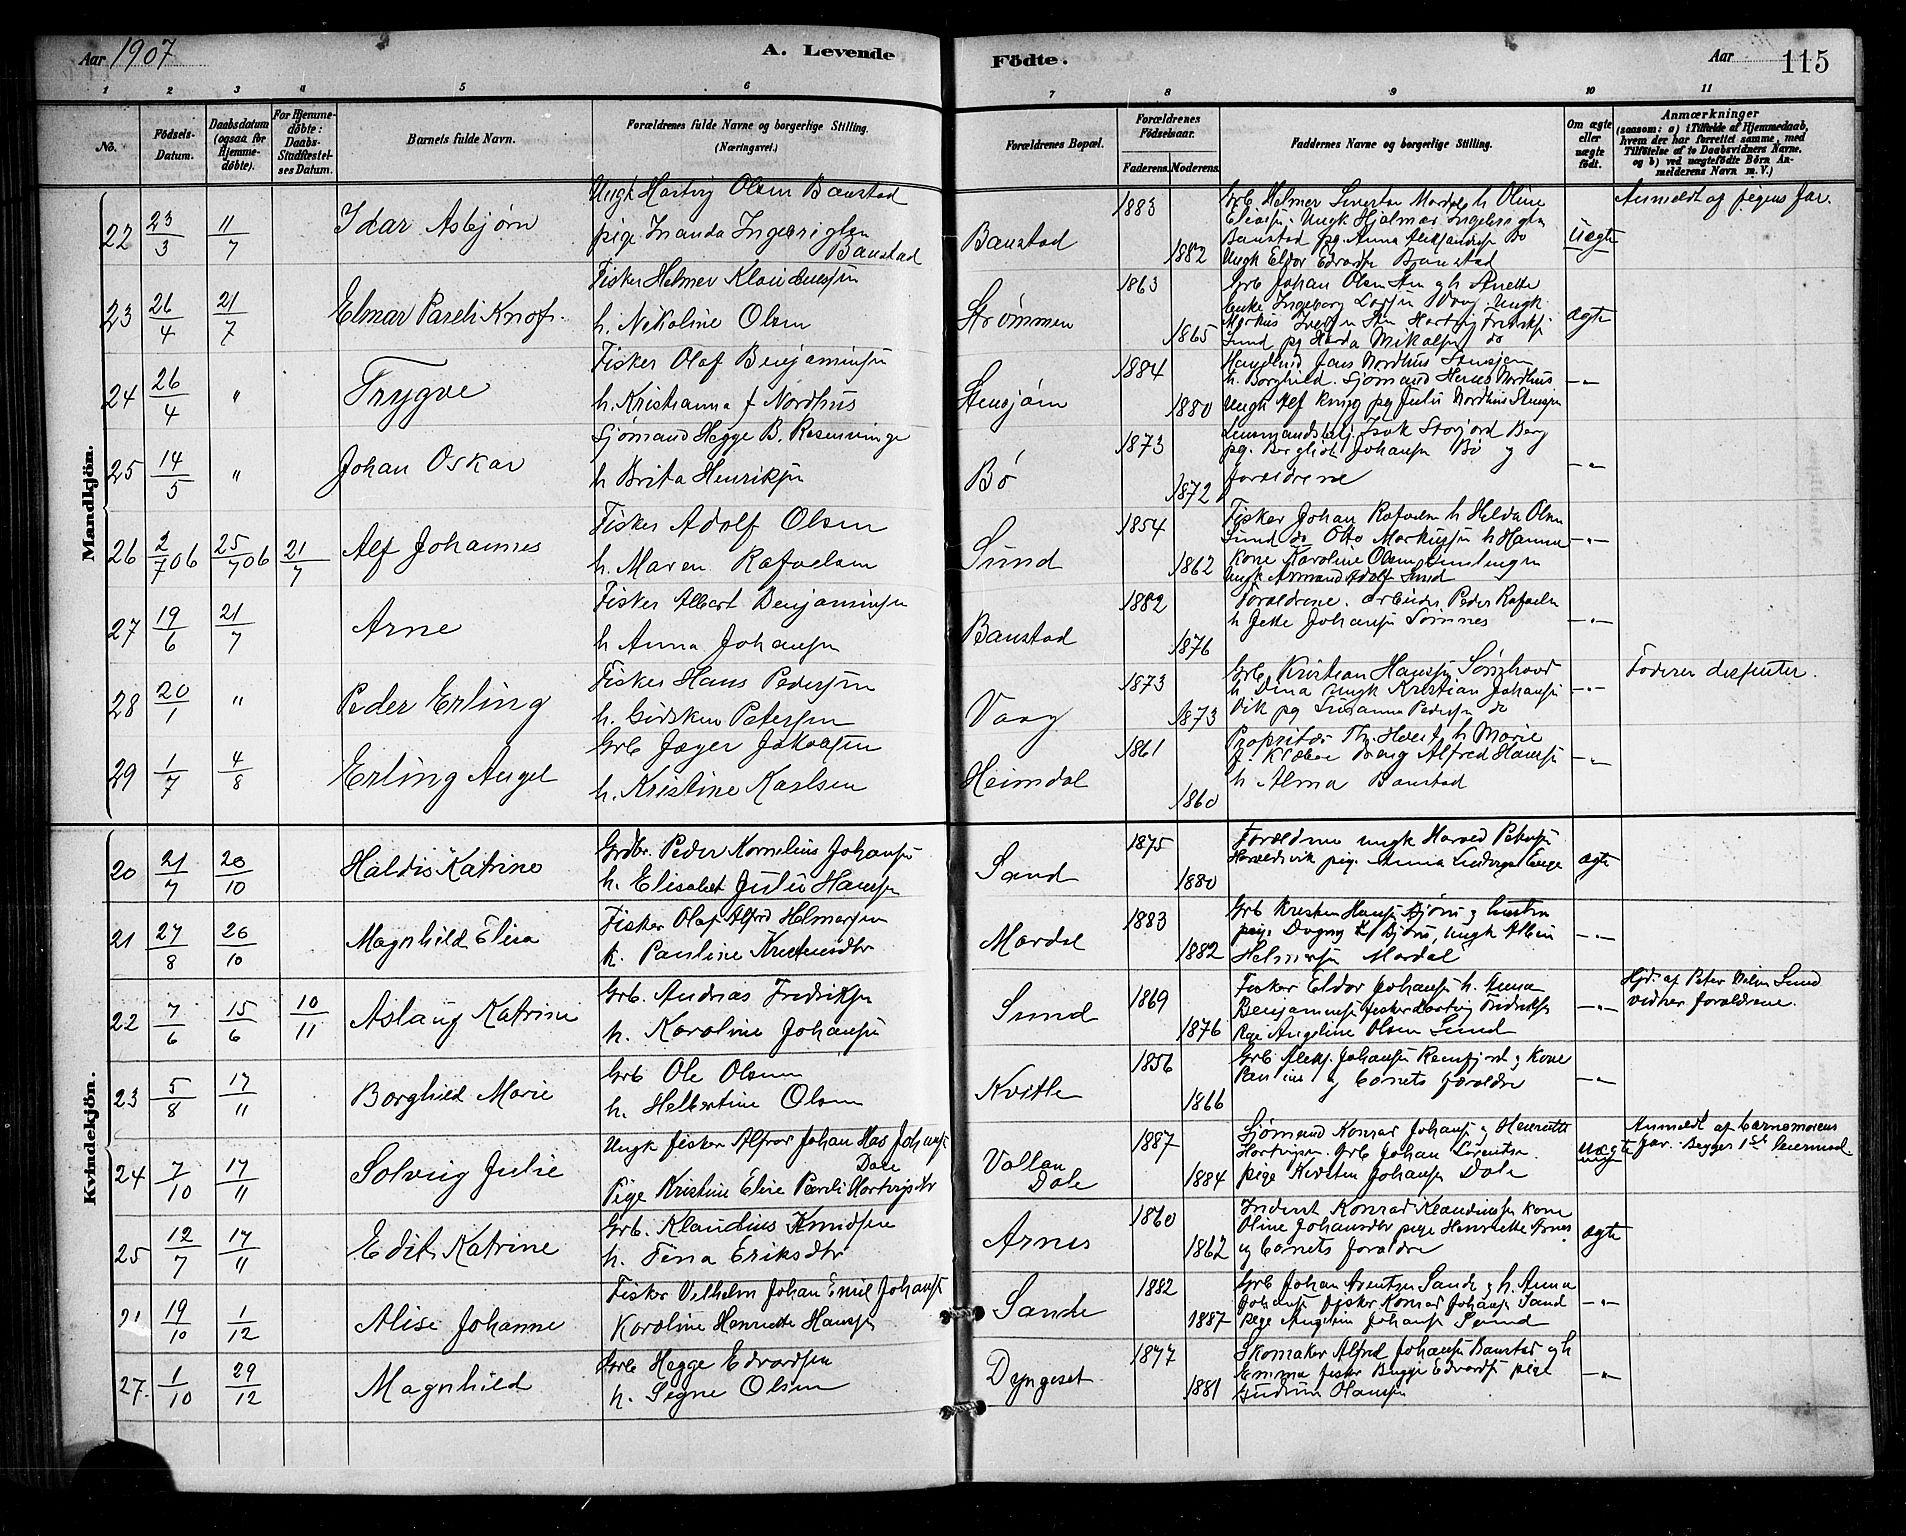 Aar 1907
A. Levende
Födte.
Aar
115
1 2 3 4 5 6 7 8 9 10 11
No.
Födsels-Datum.
Daabsdatum (ogsaa for Hjemmedöbte).
For Hjemmedöbte: Daabs-Stadfæstelses Datum.
Barnets fulde Navn.
Forældrenes fulde Navne og borgerlige Stilling.
(Næringsvei.)
Forældrenes Bopæl.
Forældrenes Födselsaar.
Faderens. Moderens.
Faddernes Navne og borgerlige Stilling.
Om ægte eller uægte födt.
Anmærkninger
(saasom: a) i Tilfælde af Hjemmedaab, hvem der har forrettet samme, med Tilföielse af to Daabsvidners Navne, og b) ved uægtefödte Börn Anmelderens Navn m. V.)
Mandkjön.
22 23/3 11/7 Idar Asbjørn
Ungk Hartvig Olsen Baustad
pige Inanda Ingebrigtsen Baustad
Baustad 1883 1882
Grb Helmer Sivertsen Mardal h Oline
Eliasen. Ungk Hjalmar Ingebrigtsen
Baustad pg. Anna Aleksandersen Bø
Ungk Eldor Edvardsen Baustad
Uægte
Anmeldt af pigens far.
23 26/4 21/7 Elmar Pareli Knof.
Fisker Helmer Klaudiussen
h. Nikoline Olsen
Strømmen 1863 1865
Grb Johan Olsen Sten og h Anette
Enke Ingeborg Larsen Vaag. Ungk
Markus Sten Hartvig
Sund pg Harda Mikalsen do
ægte
24 26/4 " Trygve
Fisker Olaf Benjaminsen
h. Kristianna f Nordhus
Stensjøen 1884 1880
Handlend Jens Nordhus Stensjøen
h. Borghild. Sjømand Hans Nordhus
Ungk Alf pg Julie Nordhus Stensjøen
-"-
25 14/5 " Johan Oskar
Sjømand Hegge B. Rosenvinge
h Brita Henriksen
Bø 1873 1872
Lensmandsbetj. Isak Storjord Berg
pg. Bergliot Johansen Bø og
forældrene
-"-
26 2/7 06 25/7 06 21/7 Alf Johannes
Fisker Adolf Olsen
h. Maren Rafaelsen
Sund 1854 1862
Fisker Johan Rafaelsen h Helda Olsen
Sund do Otto Markussen h Hanna
Kone Karoline Olsen
Ungk Armand Adolfs Sund
-"-
27 19/6 21/7 Arne
Fisker Albert Benjaminsen
h Anna Johansen
Baustad 1882 1876
Forældrene. arbeider Peder Rafaelsen
h Jette Johansen Sømnes
-"-
28 20/1 " Peder Erling
Fisker Hans Pedersen
h. Gidsken Petersen
Vaag 1873 1873
Grb Kristian Hansen
h Dina Ungk Kristian Johansen
Vik pg Susanna Pedersen do
-"-
Faderen dissenter.
29 1/7 4/8 Erling Angel
Grb Jæger Jakobsen
h. Kristine Karlsen
Heimdal 1861 1860
Proprietær Th. h Marie
f. Klæboe Alfred Hansen
h Alma Baustad
-"-
Kvindekjön.
20 21/7 20/10 Haldis Katrine
Grdbr. Peder Kornelius Johansen
h. Elisabet Julie Hansen
Sand 1875 1880
Forældrene ungk Harald Petersen
Haraldsvik pige Anna
ægte
21 27/8 20/10 Magnhild Elisa
Fisker Olaf Alfred Helmersen
k. Pauline Kristensdtr
Mardal 1883 1882
Grb Kristen Hansen Bjørn og hustru
pige Dagny Bjørn, ungk Albin
Helmersen Mardal
-"-
22 7/6 15/6 10/11 Aslaug Katrine
Grb. Andreas Fredriksen
h. Karoline Johansen
Sund 1869 1876
Fisker Eldor Johansen h. Anna
Benjaminsen fisker Hartvig Fredriksen
Pige Angeline Olsen Sund
-"-
Hjd. af Peter Sund
vidner forældrene.
23 5/8 17/11 Borghild Marie
Grb Ole Olsen
h. Helbertine Olsen
Kvitle 1856 1866
Grb Aleks. Johansen Ramfjord og Kone
Pauline og barnets forældre
-"-
24 7/10 17/11 Solveig Julie
Ungk fisker Alfred Johan Johansen Dale
Pige Kristine Elise Pareli Hartvigsdtr
Vallan
Dale 1887 1884
Sjømand Konrad Johansen og Henriette
Hartvigsen. Grb Johan Lorentsen
pige Kirsten Johansen Dale
Uægte
Anmeldt af barnemorens
far. Begges 1ste leiermaal
25 12/7 17/11 Edit Katrine
Grb. Klaudius Knudsen
h. Tina Eriksdtr
Arnes 1860 1862
Indent Konrad Klaudiussen kone
Oline Johansdtr pige Henriette Arnes
og barnets forældre
ægte
21 19/10 1/12 Alise Johanne
Fisker Vilhelm Johan Emil Johansen
Karoline Henriette Hansen
Sande 1882 1887
Grb Johan Arentsen Sande og h. Anna
Johansen fisker Konrad Johansen Sand
pige Angelin Johansen Sund
-"-
27. 1/10 29/12 Magnhild
Grb Hegge Edvardsen
h. Signe Olsen
Dyngeset 1877 1881
Skomaker Alfred Johansen Baustad og h
Emma fisker Bugge Edvardsen pige
Gudrun Olausen
-"-